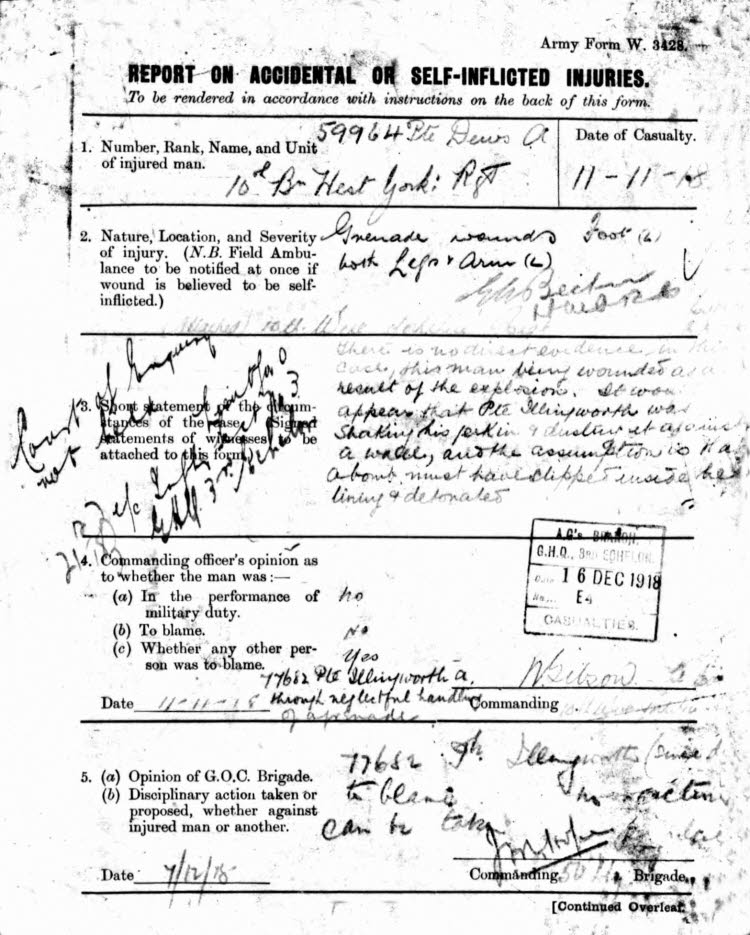 Army Form W. 3428.
REPORT ON ACCIDENTAL OR SELF-INFLICTED INJURIES.
To be rendered in accordance with instructions on the back of this form.
1. Number, Rank, Name, and Unit of injured man.
59964 Pte Dews A
10th Bn West York: Rgt
Date of Casualty.
11-11-18
2. Nature, Location, and Severity of injury. (N.B. Field Ambulance to be notified at once if wound is believed to be self-inflicted.)
Grenade wounds Foot (L)
both Legs & Arm (L)
3. Short statement of the circumstances of the case. (Signed statements of witnesses to be attached to this form.)
Court of Enquiry
not
There is no direct evidence, in this
case, this man being wounded as a
result of the explosion. It would
appear that Pte Illingworth was
shaking his jerkin & dusting it against
a wall, and the assumption is that
a bomb must have slipped inside the
lining & detonated
A.G's BRANCH
G.H.Q., 3RD ECHELON.
16 DEC 1918
No. E4
CASUALTIES.
4. Commanding officer's opinion as to whether the man was:—
(a) In the performance of military duty.
No
(b) To blame.
No
(c) Whether any other person was to blame.
Yes
77682 Pte Illingworth A.
through neglectful handling
of a grenade
Date 11-11-18
Commanding
5. (a) Opinion of G.O.C. Brigade.
(b) Disciplinary action taken or proposed, whether against injured man or another.
77682 Pte Illingworth
to blame no action
can be taken
Date 7/12/18
Commanding 50th Brigade.
[Continued Overleaf.